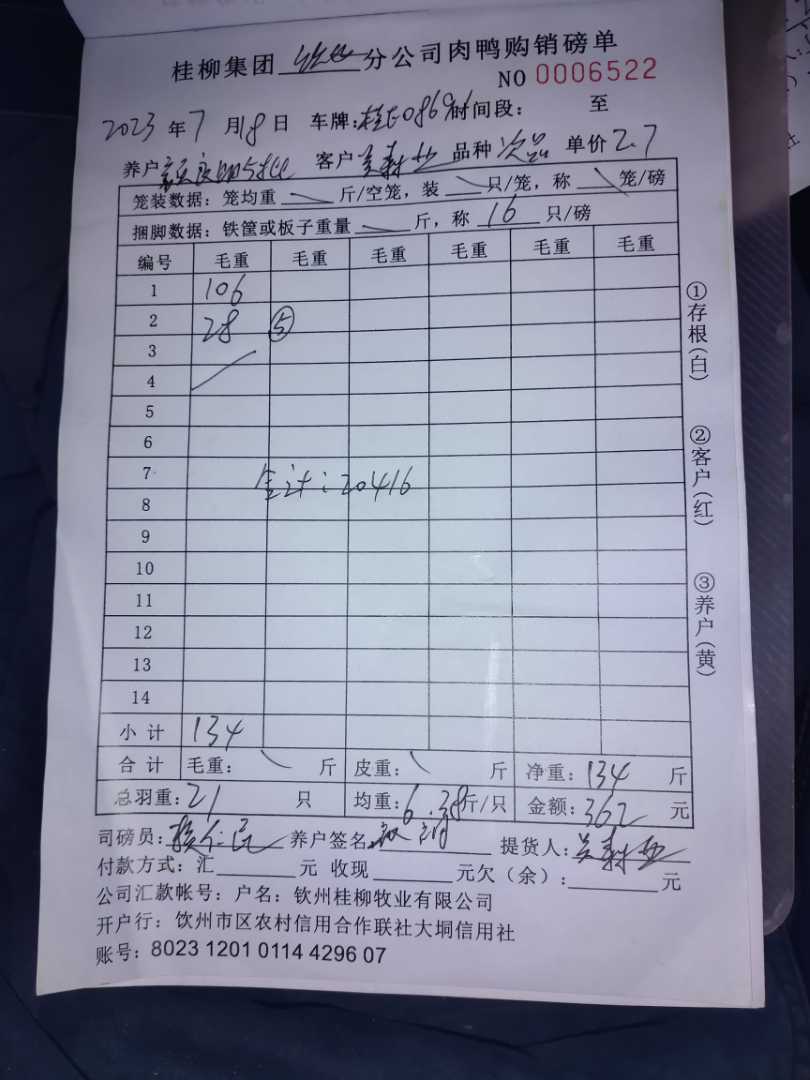 桂柳集团 分公司肉鸭购销磅单
NO 0006522
2023年7月18日 车牌:桂E0869 时间段: 至
养户 客户 品种 次品 单价 2.7
笼装数据: 笼均重 斤/空笼, 装 只/笼, 称 笼/磅
捆脚数据: 铁筐或板子重量 斤, 称 16 只/磅
编号 毛重 毛重 毛重 毛重 毛重 毛重
1 106
2 28 ⑤
3
4
5
6
7
合计:20416
8
9
10
11
12
13
14
小计 134
合计 毛重: 斤 皮重: 斤 净重: 134 斤
总羽重: 21 只 均重: 6.38 斤/只 金额: 362 元
司磅员: 养户签名 提货人:
付款方式: 汇 元 收现 元欠(余): 元
公司汇款帐号: 户名: 钦州桂柳牧业有限公司
开户行: 饮州市区农村信用合作联社大垌信用社
账号: 8023 1201 0114 4296 07
①存根(白)
②客户(红)
③养户(黄)